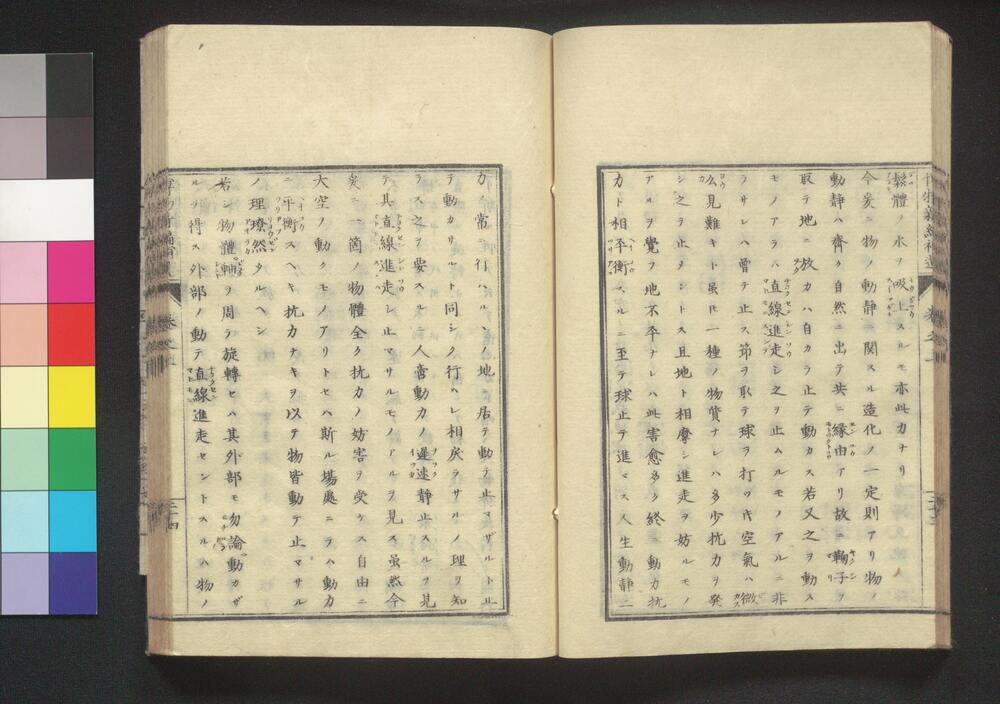 鬆體ノ水ヲ吸上スルモ亦此力ナリ
今爰ニ物ノ動靜ニ関スル造化ノ一定則アリ物ノ
動靜ハ齊ク自然ニ出テ共ニ縁由アリ故ニ鞠子ヲ
取テ地ニ放カハ自カラ止テ動カス若又之ヲ動ス
モノアラハ直線進走シ之ヲ止ムルモノアルニ非
ラサレハ曾テ止ス節ヲ取テ球ヲ打ツ氏空氣ハ微
么見難キト雖氏一種ノ物質ナレハ多少抗力ヲ発
シ之ヲ止メントス且地ト相摩シ進走ヲ妨ルモノ
アルヲ覺フ地不平ナレハ此害愈多ク終ニ動力抗
力ト相平衡スルニ至テ球止テ進マス人生動靜二
力ノ常ニ行ハルヽ地ニ居テ動テ止マザルト止
テ動カサルト同シク行ハレ相戻ラサルノ理ヲ知
ラス之ヲ要スルニ人啻動力ノ遅速静止スルヲ見
テ其直線進走シ止マサルモノアルヲ見ス雖然今
爰ニ一箇ノ物體全ク抗力ノ妨害ヲ受ケス自由ニ
大空ノ動クモノアリトセハ斯ル場處ニヲハ動力
ニ平衡スヘキ抗力ナキヲ以テ物皆動テ止マサル
ノ理瞭然タルヘシ
若シ物體軸ヲ周ラ旋轉セハ其外部モ勿論動カザ
ルヲ得ス外部ノ動テ直線進走セントスルハ物ノ